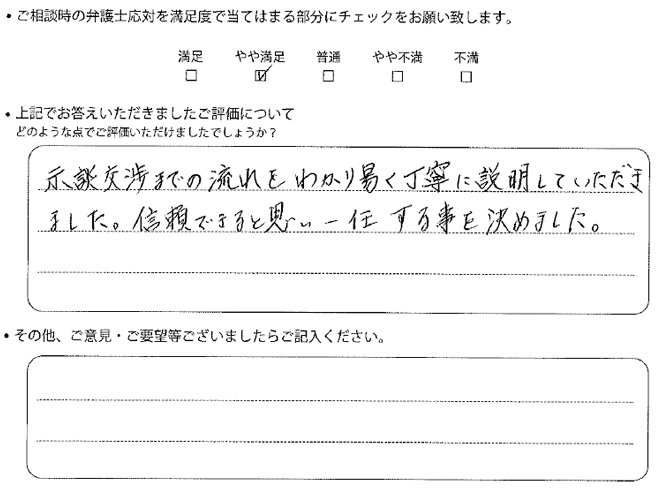 • ご相談時の弁護士応対を満足度で当てはまる部分にチェックをお願い致します。
満足 やや満足 普通 やや不満 不満
□ ☑ □ □ □
• 上記でお答えいただきましたご評価について
どのような点でご評価いただけましたでしょうか？
示談交渉までの流れをわかり易く丁寧に説明していただき
ました。信頼できると思い一任する事を決めました。
• その他、ご意見・ご要望等ございましたらご記入ください。